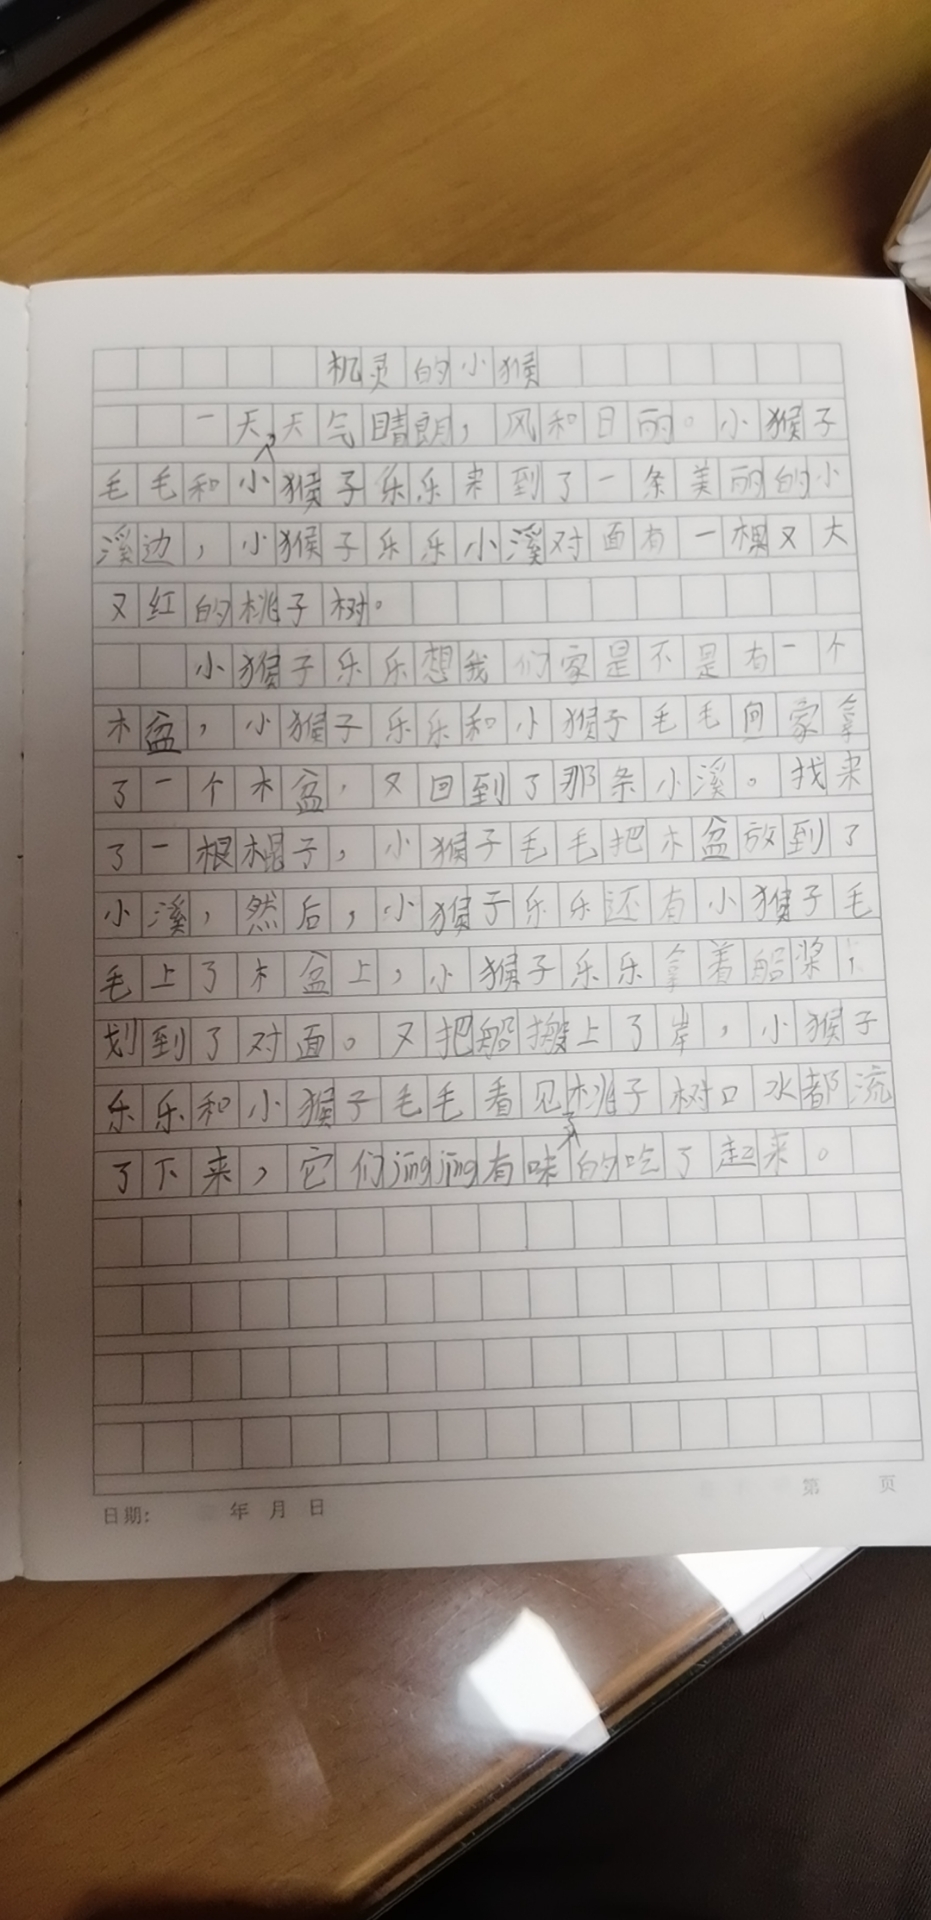 机灵的小猴
一天，天气晴朗，风和日丽。小猴子
毛毛和小猴子乐乐来到了一条美丽的小
溪边，小猴子乐乐小溪对面有一棵又大
又红的桃子树。
小猴子乐乐想我们家是不是有一个
木盆，小猴子乐乐和小猴子毛毛向家拿
了一个木盆，又回到了那条小溪。找来
了一根棍子，小猴子毛毛把木盆放到了
小溪，然后，小猴子乐乐还有小猴子毛
毛上了木盆上，小猴子乐乐拿着船桨
划到了对面。又把船搬上了岸，小猴子
乐乐和小猴子毛毛看见桃子树口水都流
了下来，它们jīngjīng有味的吃了起来。
日期: 年 月 日 第 页